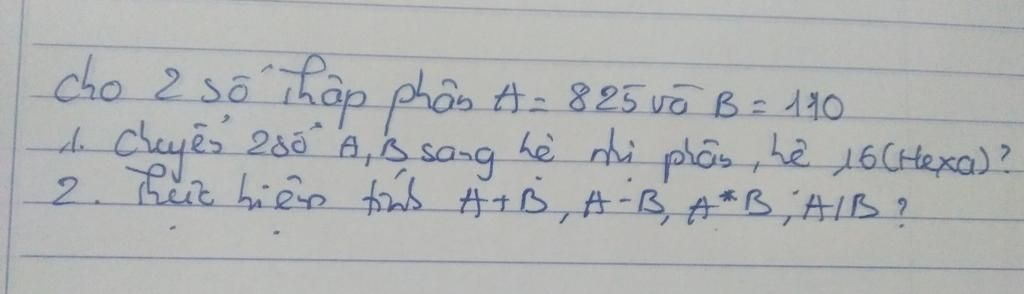 Cho 2 số Thập phân A = 825 và B = 110
1. Chuyển 2 số A, B sang hệ nhị phân, hệ 16 (Hexa)?
2. Thực hiện tính A + B, A - B, A * B, A / B ?